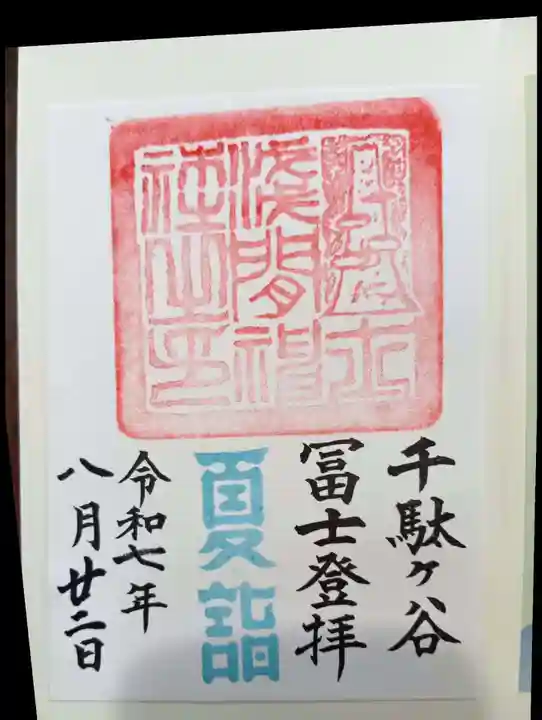 千駄ヶ谷
冨士登拝
夏詣
令和七年
八月廿二日
冨士
浅間神
社之印